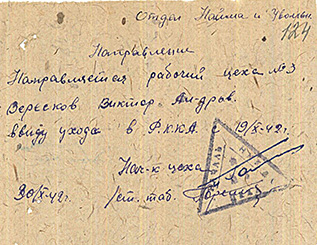 Отдел Найма и Увольн.
124
Направление
Направляется рабочий цеха №3
Вересков Виктор Ал-дров.
ввиду ухода в Р.К.К.А с 19/X-42г.
Нач-к цеха
20/X-42г. /ст. таб.